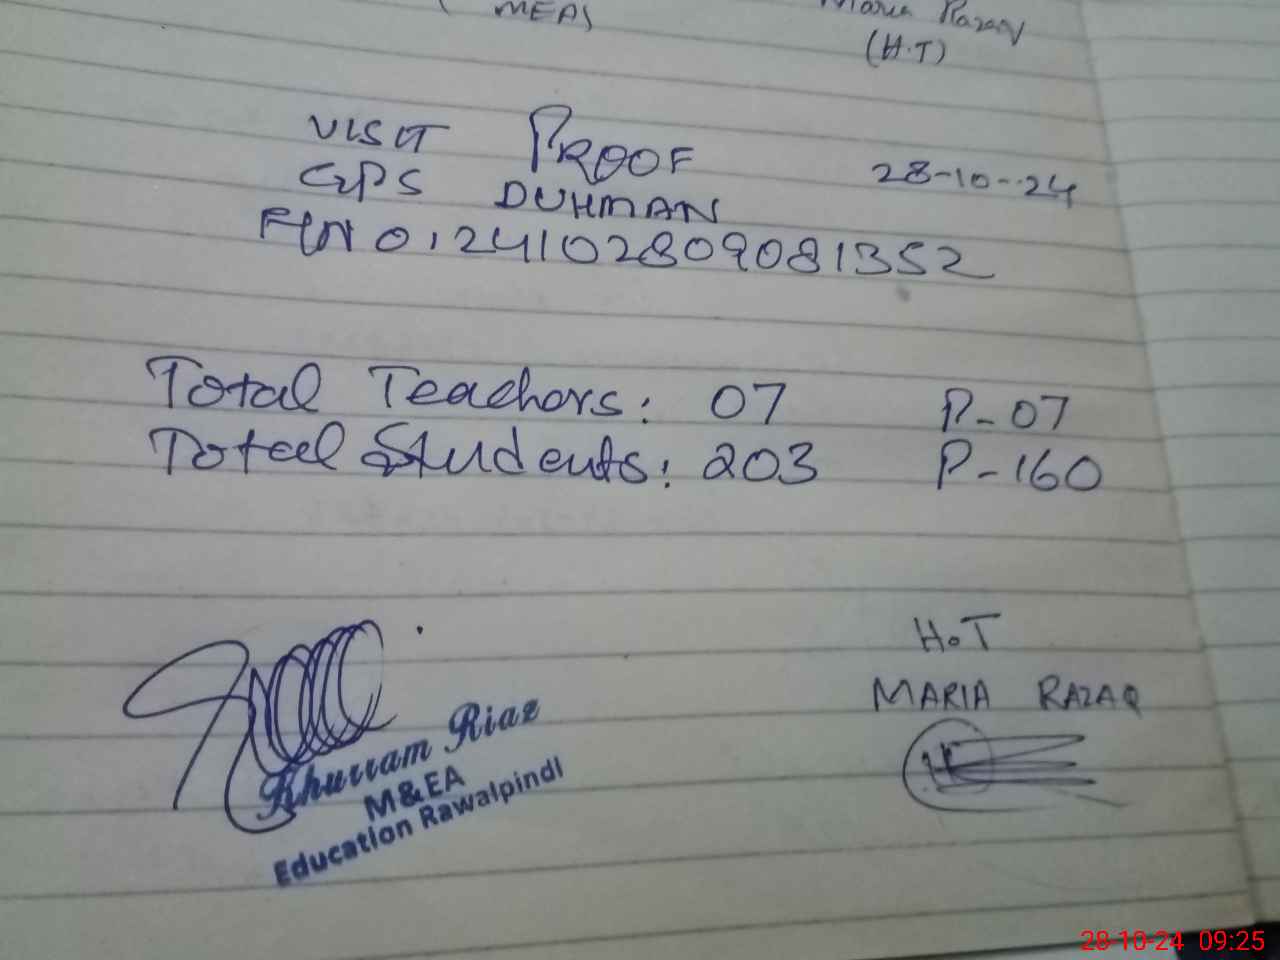 MEAS
Maria Razaq
(H.T)
VISIT PROOF 28-10-24
GPS DUHMAN
0124102809081352
Total Teachers: 07 P-07
Total Students: 203 P-160
H.T
MARIA RAZAQ
Khurram Riaz
M&EA
Education Rawalpindi
28-10-24 09:25